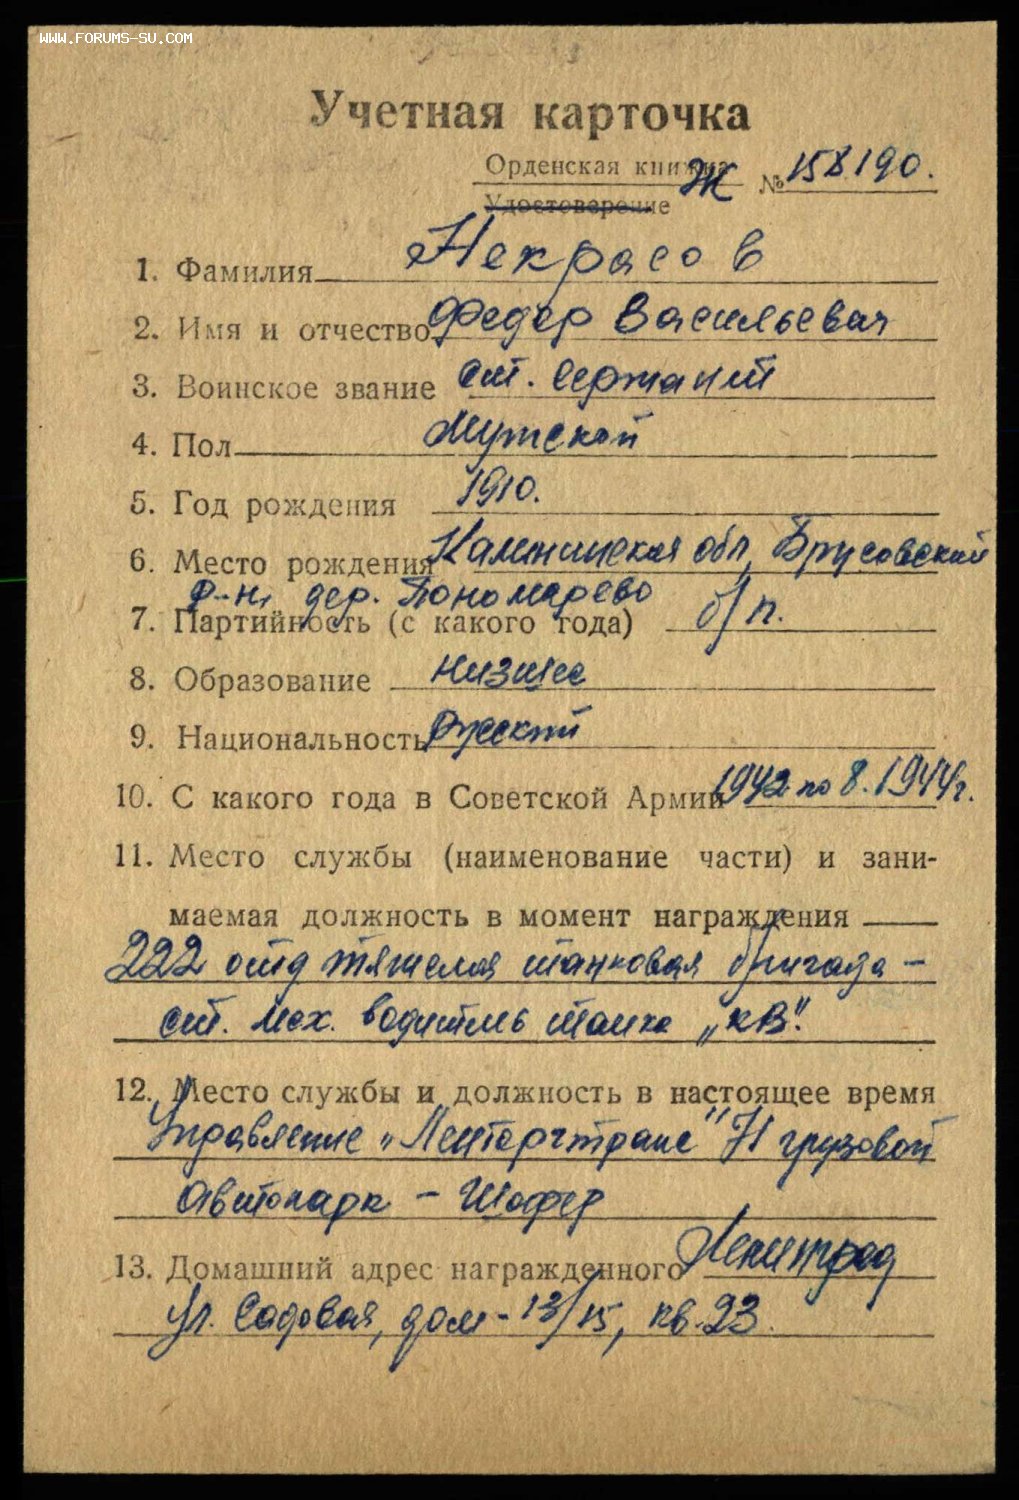 WWW.FORUMS-SU.COM
Учетная карточка
Орденская книжка Ж № 158190.
Удостоверение
1. Фамилия Некрасов
2. Имя и отчество Федор Васильевич
3. Воинское звание ст. Сержант
4. Пол Мужской
5. Год рождения 1910.
6. Место рождения Калининская обл, Брусовский
р-н, дер. Пономарево
7. Партийность (с какого года) б/п.
8. Образование низшее
9. Национальность Русский
10. С какого года в Советской Армии 1942 по 8.1944г.
11. Место службы (наименование части) и зани-
маемая должность в момент награждения
222 отд тяжелая танковая бригада –
ст. Мех. водитель танка „КВ".
12. Место службы и должность в настоящее время
Управление „Ленторгтранс"
грузовой
Автопарк – Шофер
13. Домашний адрес награжденного Ленинград
ул. Садовая, дом - 13/15, кв. 23.